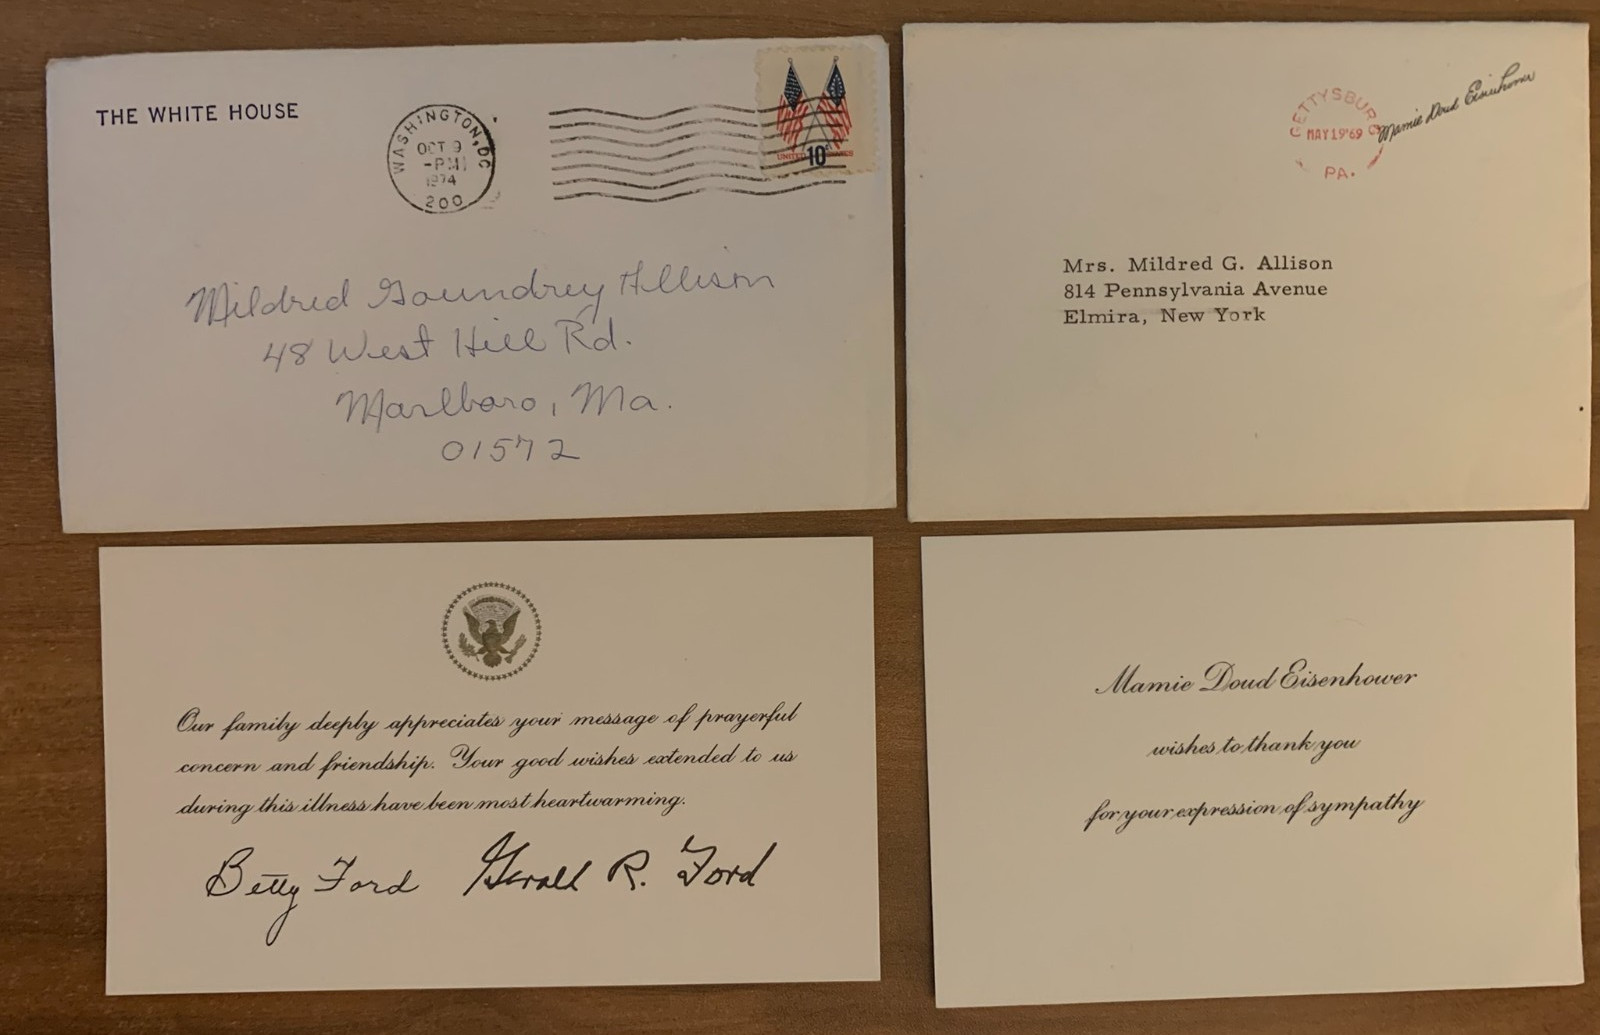 THE WHITE HOUSE
WASHINGTON, DC
OCT 9
-PM
1974
200
UNITED
10c
Mildred Goundrey Allison
48 West Hill Rd.
Marlboro, Ma.
01572
GETTYSBURG
MAY 19'69
PA.
Mamie Doud Eisenhower
Mrs. Mildred G. Allison
814 Pennsylvania Avenue
Elmira, New York
Our family deeply appreciates your message of prayerful
concern and friendship. Your good wishes extended to us
during this illness have been most heartwarming.
Betty Ford Gerald R. Ford
Mamie Doud Eisenhower
wishes to thank you
for your expression of sympathy